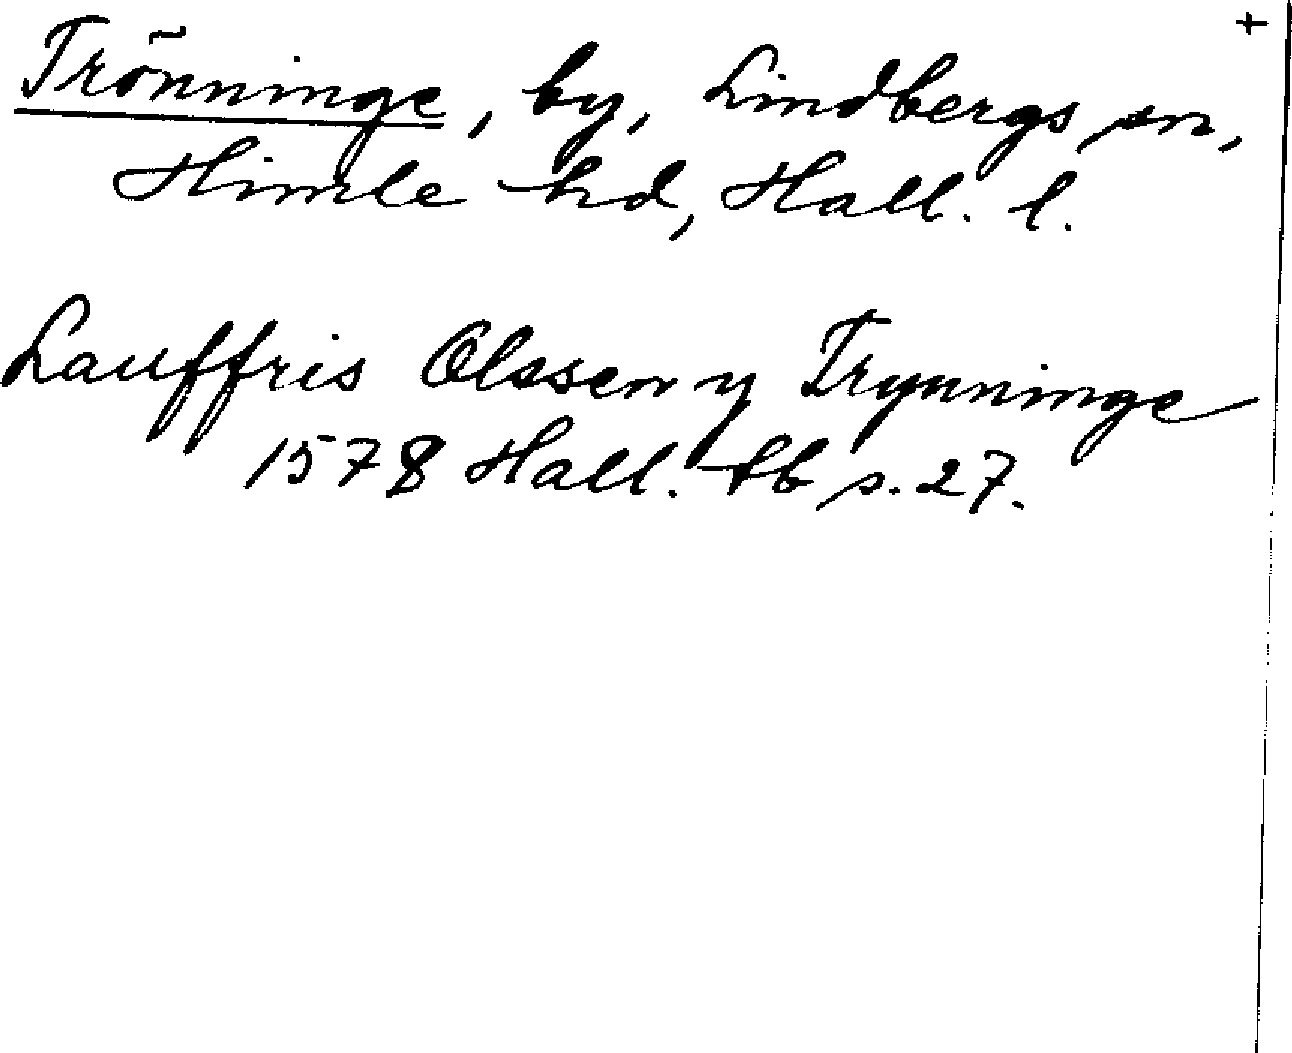 +
Trönninge, by, Lindbergs sn,
Himle hd, Hall. l.
Lauffris Olssen y Trynninge
1578 Hall. tb s. 27.